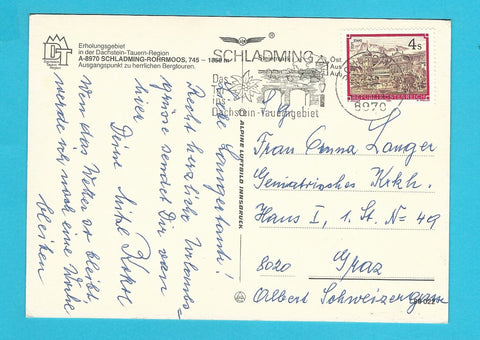 Erholungsgebiet
in der Dachstein-Tauern-Region
A-8970 SCHLADMING-ROHRMOOS, 745 - 1850 m
Ausgangspunkt zu herrlichen Bergtouren.
SCHLADMING
Dachstein-Tauerngebiet
8970
4 S
REPUBLIK ÖSTERREICH
ALPINE LUFTBILD INNSBRUCK
Liebe Langertant!
Recht herzliche Urlaubs-
grüsse sendet Dir von
hier Deine
Wenn das Wetter so bleibt,
werde ich noch eine Woche
bleiben
Frau Anna Langer
Geriatrisches Krkh.
Haus I, 1. St. No 49
8020 Graz
Albert Schweizergasse